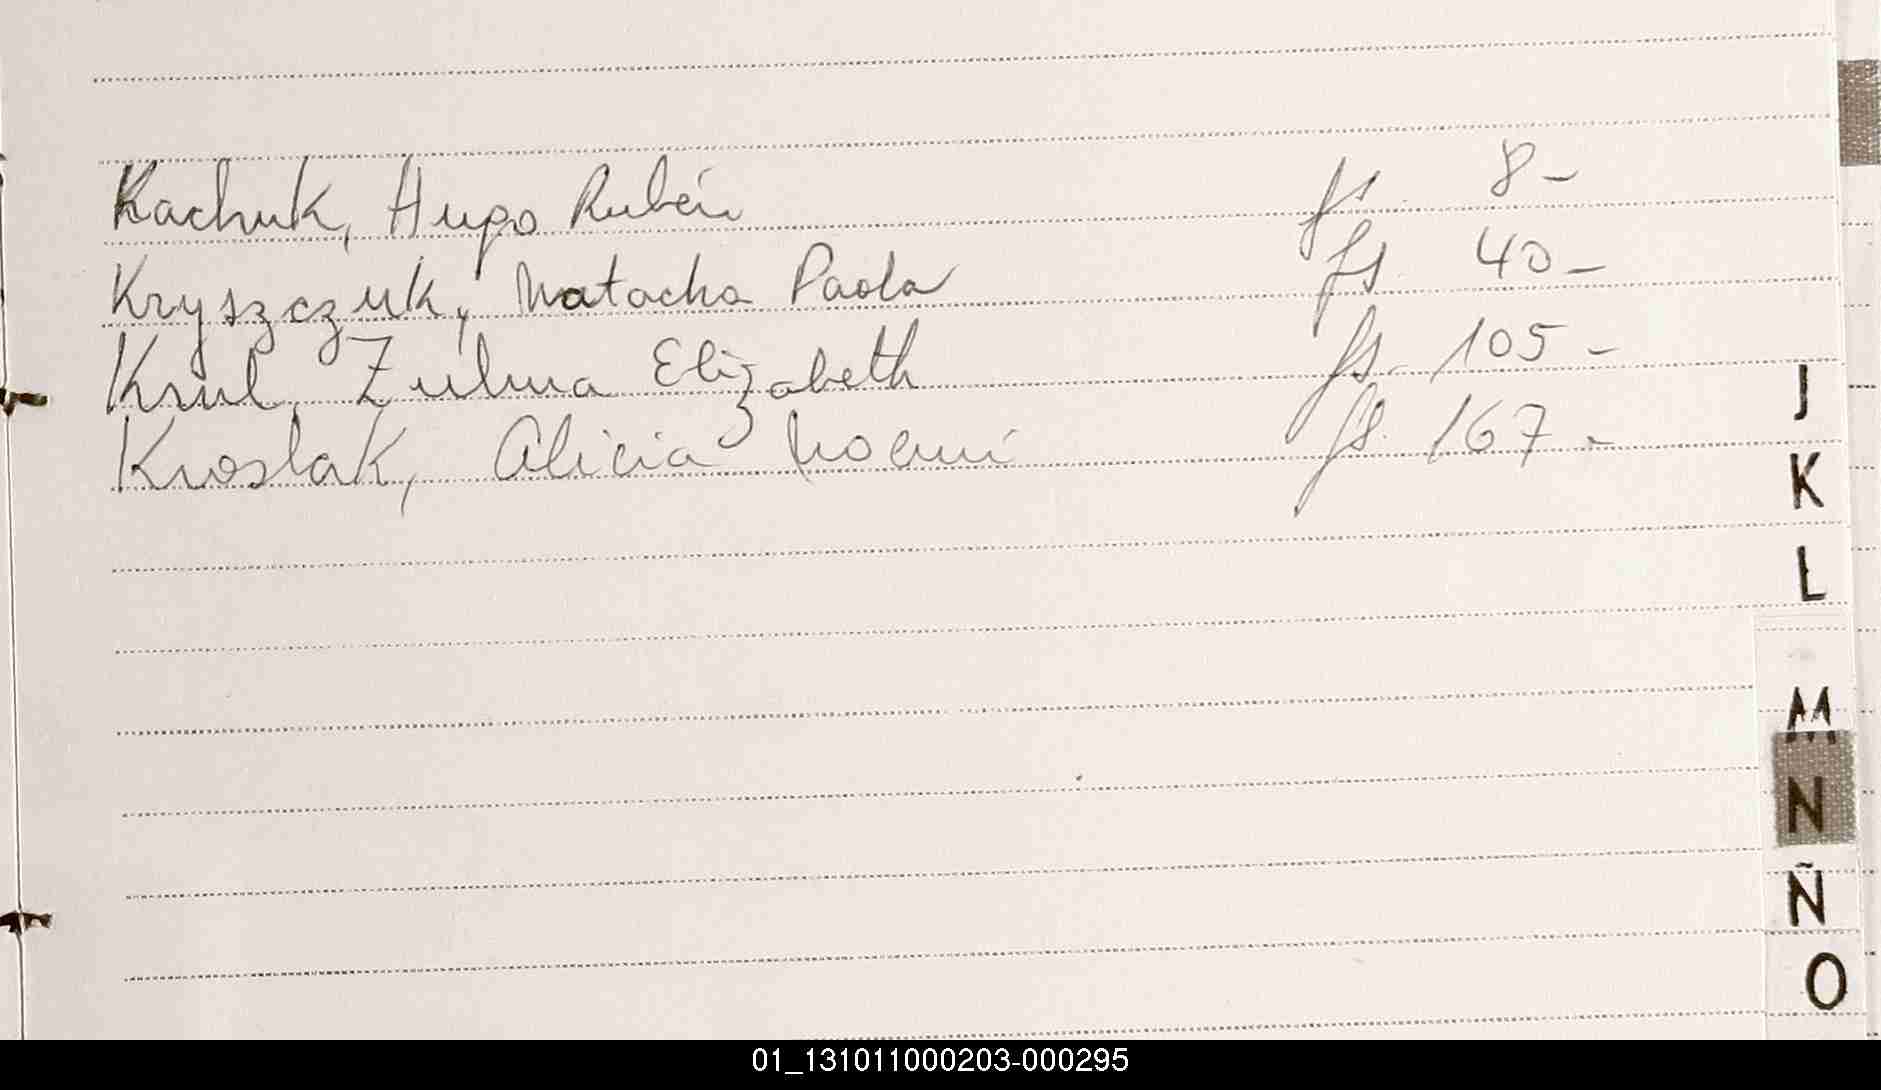 Kachuk, Hugo Rubén fs. 8-
Kryszczuk, Natacha Paola fs. 40-
Krul, Zulma Elizabeth fs. 105-
Kroslak, Alicia Noemí fs. 167-
J
K
L
M
N
Ñ
O
01_131011000203-000295